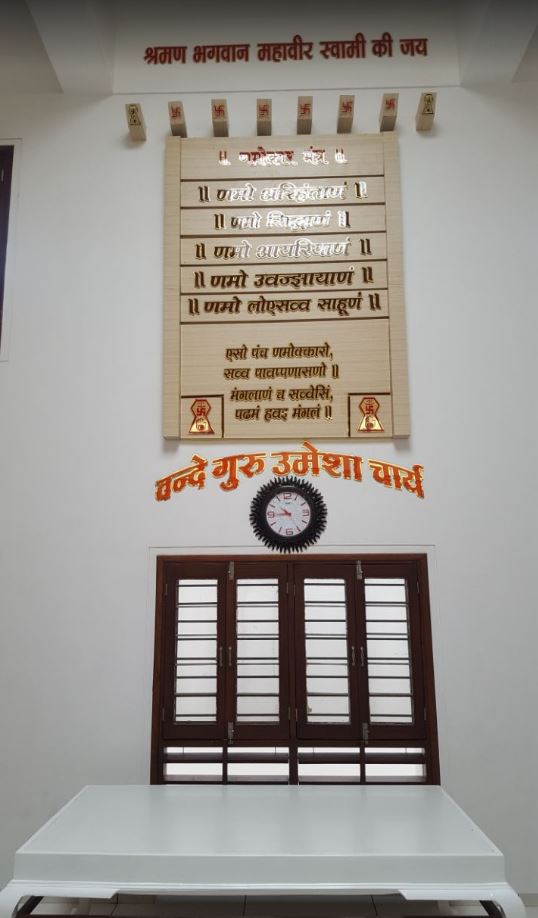 श्रमण भगवान महावीर स्वामी की जय
॥ णमोकार मंत्र ॥
॥ णमो अरिहंताणं ॥
॥ णमो सिद्धाणं ॥
॥ णमो आयरियाणं ॥
॥ णमो उवज्झायाणं ॥
॥ णमो लोएसव्व साहूणं ॥
एसो पंच णमोक्कारो,
सव्व पावप्पणासणो ॥
मंगलाणं च सव्वेसिं,
पढमं हवइ मंगलं ॥
वन्दे गुरु उमेशा चार्य